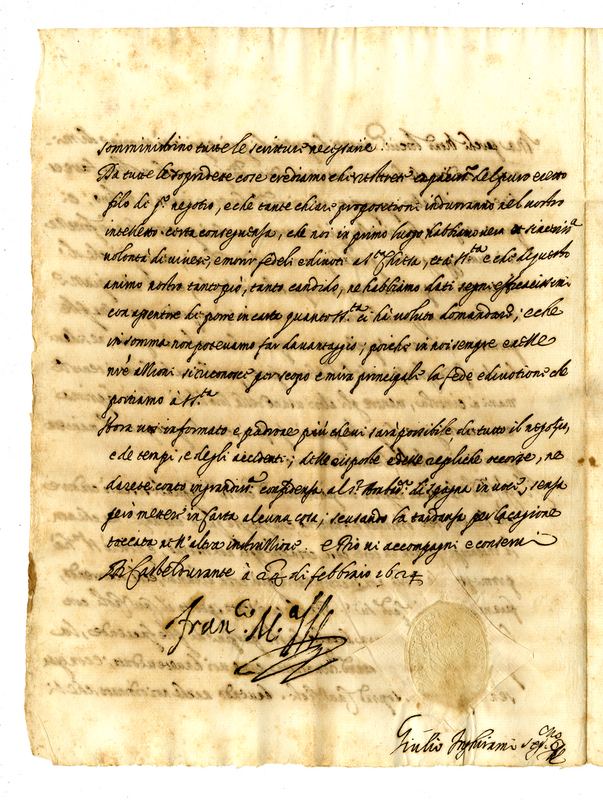 somministrino tutte le scritture necessarie.
Da tutte le sopradette cose crediamo che resterete del puro e retto
filo di q.to negotio, e che tante chiare propositioni indurranno nel vostro
intelletto certa conseguenza, che noi in primo luogo habbiamo vera et
volontà di vivere, e morir fedeli e divoti a S.ta Chiesa, et à N. S.tà e che di questo
animo nostro tanto pio, tanto candido, ne habbiamo dati segni efficacissimi
con di porre in carta quanto S.tà ci hà voluto domandare, e che
in somma non potevamo far davantaggio; poiche in noi sempre e nelle
n're attioni si riconosce per scopo e mira principale la fede e divotione che
portiamo à S.tà
Hora voi informato e padrone più che vi sarà possibile di tutto il negotio,
e de tempi, e degli accidenti; delle risposte e delle repliche occorse, ne
darete conto in grandiss.a confidenza al S.r Amb.re di Spagna in voce, senza
però mettere in carta alcuna cosa; scusando la tardanza per la cagione
toccata nell'altra instruttione. e Dio vi accompagni e conservi
Di Casteldurante à 24 di febbraio 1624
Fran.co M.a
Giulio Inghirami Seg.rio